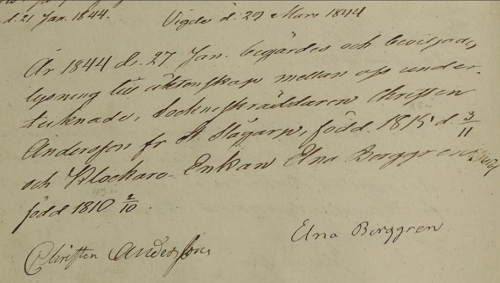 d. 21 Jan. 1844. Vigde d. 29 Mars 1844
År 1844 d. 27 Jan. begärdes och beviljades
lysning till äktenskap mellan oss under-
tecknade, Sockneskräddaren Christen
Andersson fr. St. Slågarp, född. 1815 d. 3/11
och Klockare-Enkan Elna Berggren
född 1810 2/10.
Christen Andersson Elna Berggren